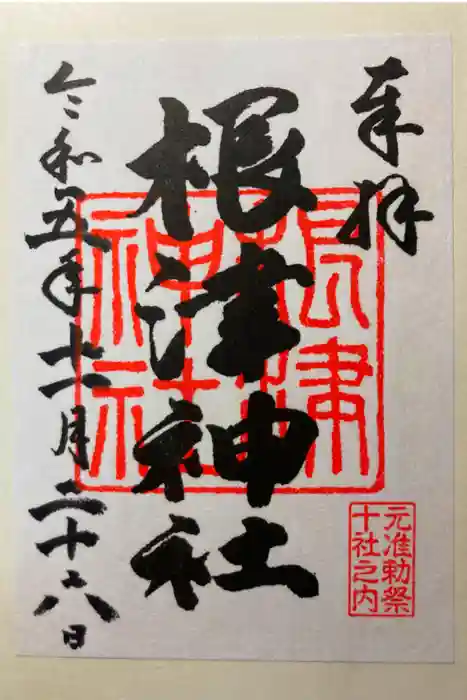 奉拝
根津神社
根津
神社
元准勅祭
十社之内
令和五年十二月二十六日